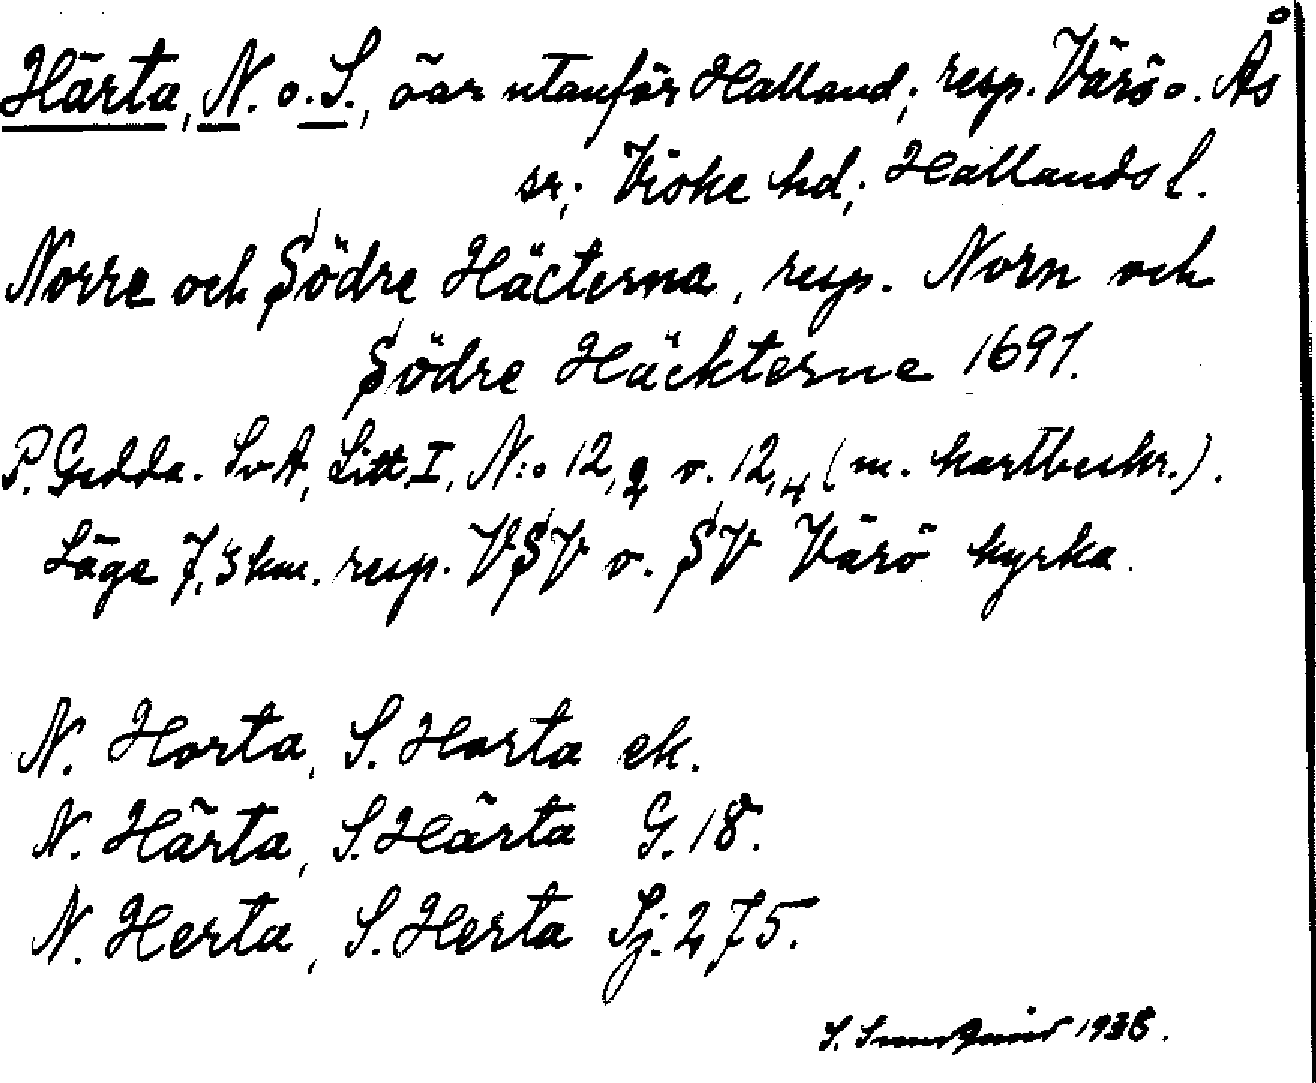 Härta, N. o. S., öar utanför Halland; resp. Värö o. Ås
sr; Viske hd; Hallands l.
Norre och Södre Häcterna, resp. Norn och
Södre Häckterne 1691.
P. Gedda. SvA, Litt. I, N:o 12,2 o. 12,4 (m. kartbeskr.).
Läge 7,3 km. resp. VSV o. SV Värö kyrka.
N. Horta, S. Horta ek.
N. Härta, S. Härta G. 18.
N. Herta, S. Herta Sj. 275.
S. 1938.